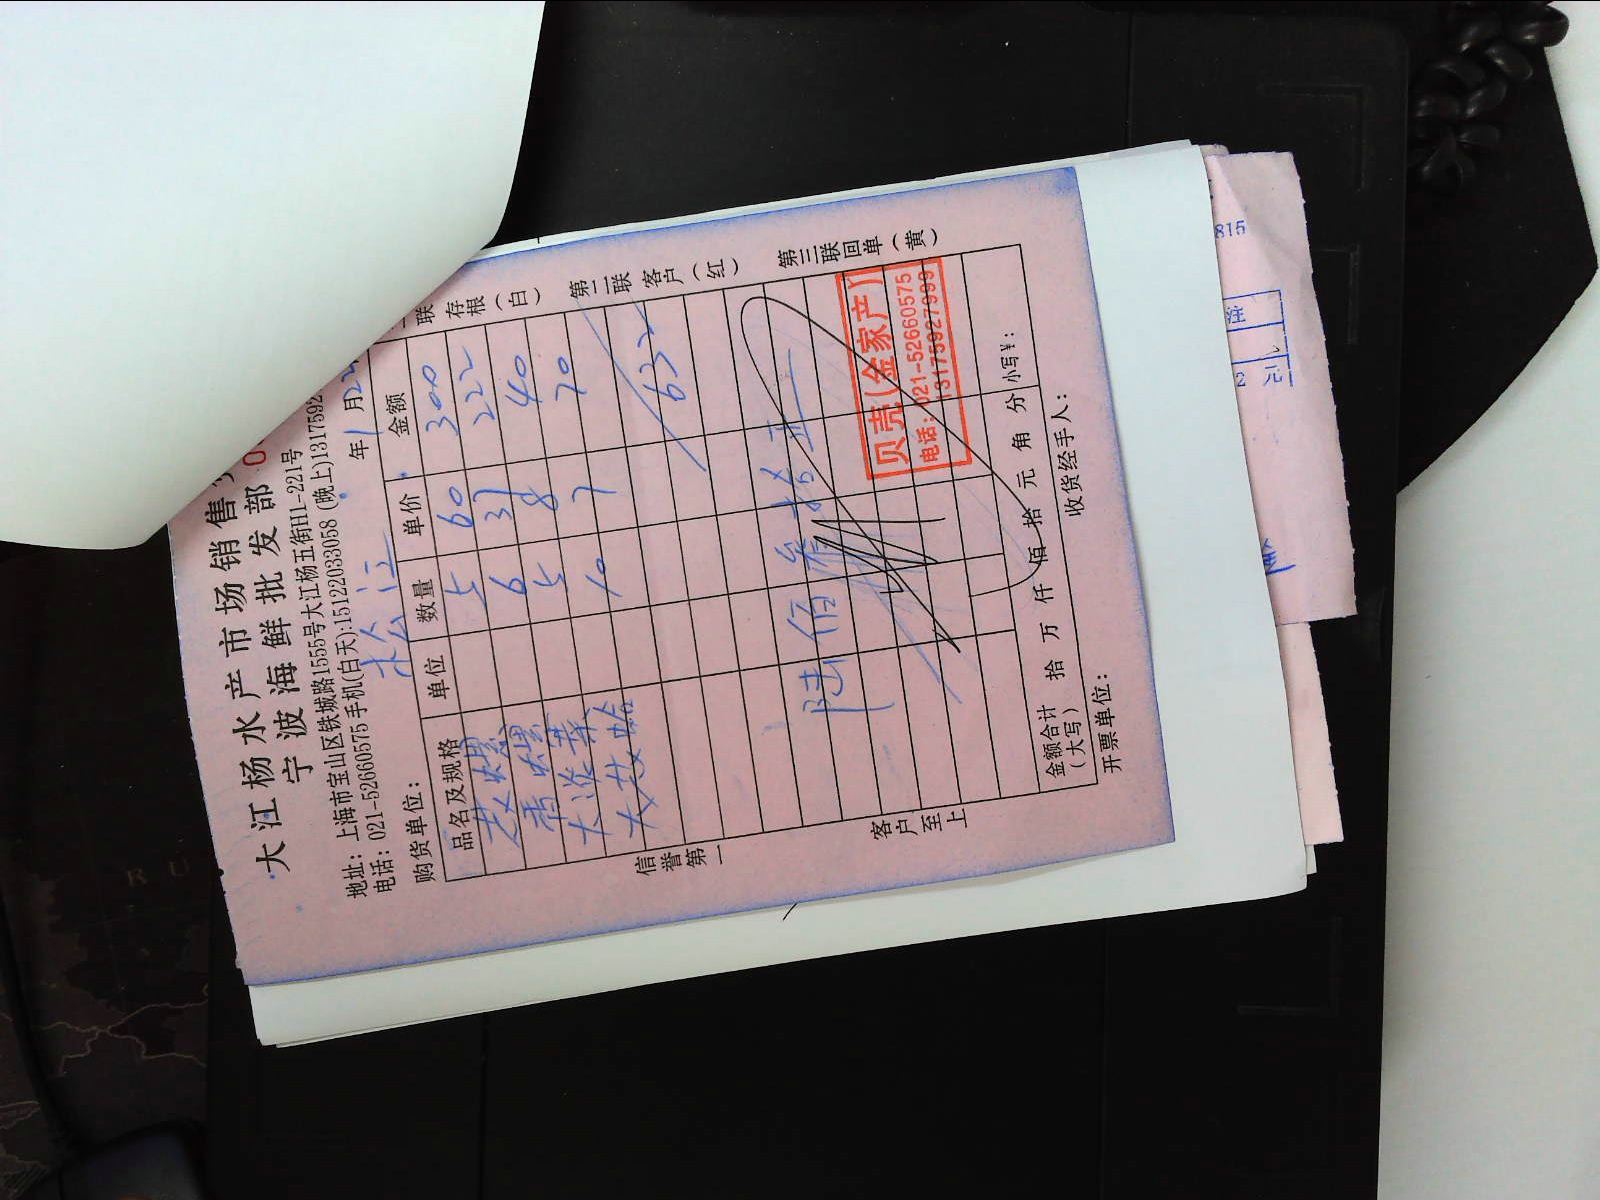 大江杨水产市场销售
宁波海鲜批发部
地址：上海市宝山区铁城路1555号大江杨五街H1-221号
电话：021-52660575 手机(白天):15122033058 (晚上)1317592
购货单位： 松江 年 1 月 2
品名及规格 单位 数量 单价 金额
5 60 300
香螺 6 37 222
5 8 40
10 7 70
632
陆佰叁拾
贝壳(金家产)
电话：021-52660575
13175927999
金额合计（大写） 拾 万 仟 佰 拾 元 角 分 小写¥：
开票单位： 收货经手人：
信誉第一
客户至上
联 存根（白）
第二联 客户（红）
第三联 回单（黄）
815
元